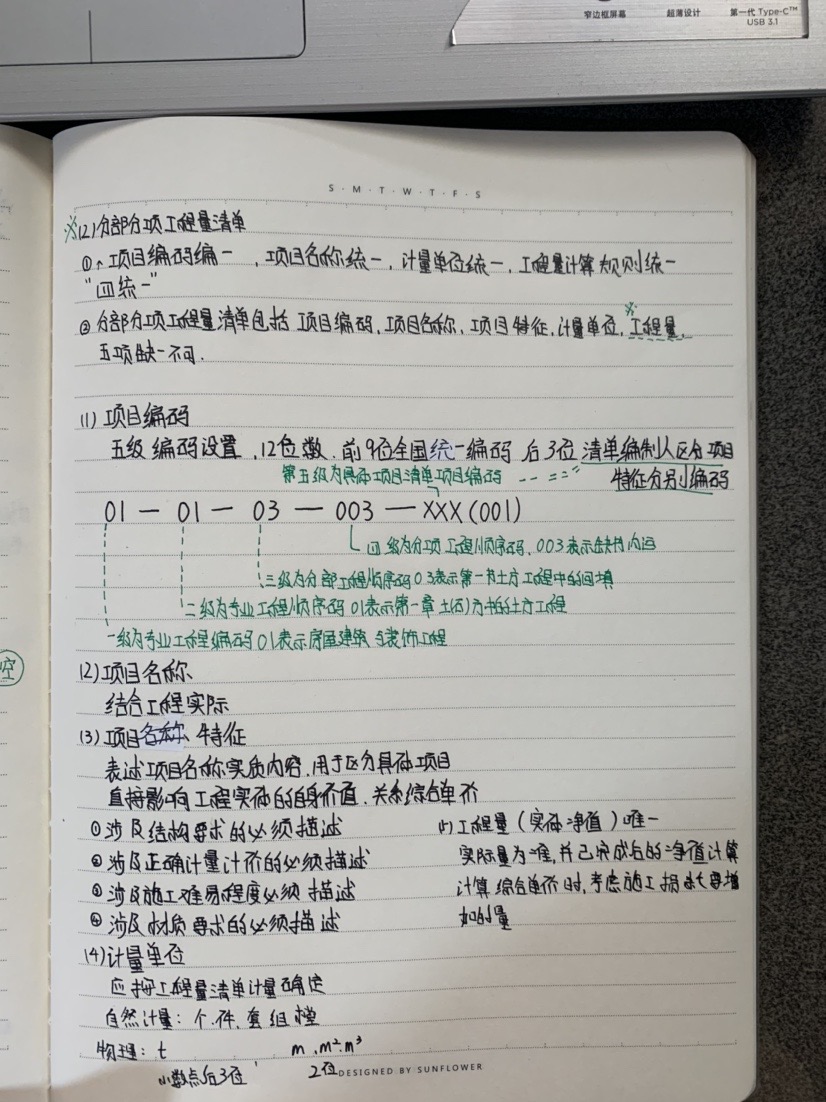 窄边框屏幕
超薄设计
第一代 Type-C™
USB 3.1
S·M·T·W·T·F·S
※(2)分部分项工程量清单
①、项目编码编一，项目名称统一，计量单位统一，工程量计算规则统一
"四统一"
②分部分项工程量清单包括 项目编码，项目名称，项目特征，计量单位，※工程量，
五项缺一不可．
(1) 项目编码
五级编码设置，12位数．前9位全国统一编码 后3位 清单编制人区分项目
特征分别编码
第五级为具体项目清单项目编码
01 — 01 — 03 — 003 — XXX(001)
四级为分项工程顺序码，003表示缺内运
三级为分部工程顺序码03表示第一书土方工程中的回填
二级为专业工程顺序码 01表示第一章土(石)方中的土方工程
一级为专业工程编码01表示房屋建筑与装饰工程
空
(2)项目名称、
结合工程实际
(3)项目名称、特征
表述项目名称实质内容．用于区分具体项目
直接影响工程实体的自身价值．关系综合单价
①涉及结构要求的必须描述
②涉及正确计量计价的必须描述
③涉及施工难易程度必须描述
④涉及材质要求的必须描述
(5)工程量(实体净值)唯一
实际量为准，并已完成后的净值计算
计算综合单价时，考虑施工损耗要增
加的量
(4)计量单位
应按工程量清单计量确定
自然计量：个．件．套 组 樘
物理：t m．m²．m³
小数点后3位 2位
DESIGNED BY SUNFLOWER